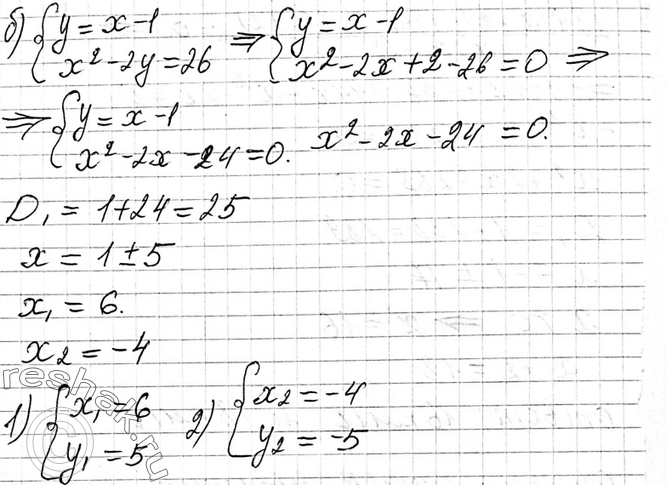 б) { y = x - 1 ⇒ { y = x - 1
x² - 2y = 26 x² - 2x + 2 - 26 = 0 ⇒
⇒ { y = x - 1
x² - 2x - 24 = 0. x² - 2x - 24 = 0.
D₁ = 1 + 24 = 25
x = 1 ± 5
x₁ = 6.
x₂ = -4
1) { x₁ = 6 2) { x₂ = -4
y₁ = 5 y₂ = -5
reshak.ru